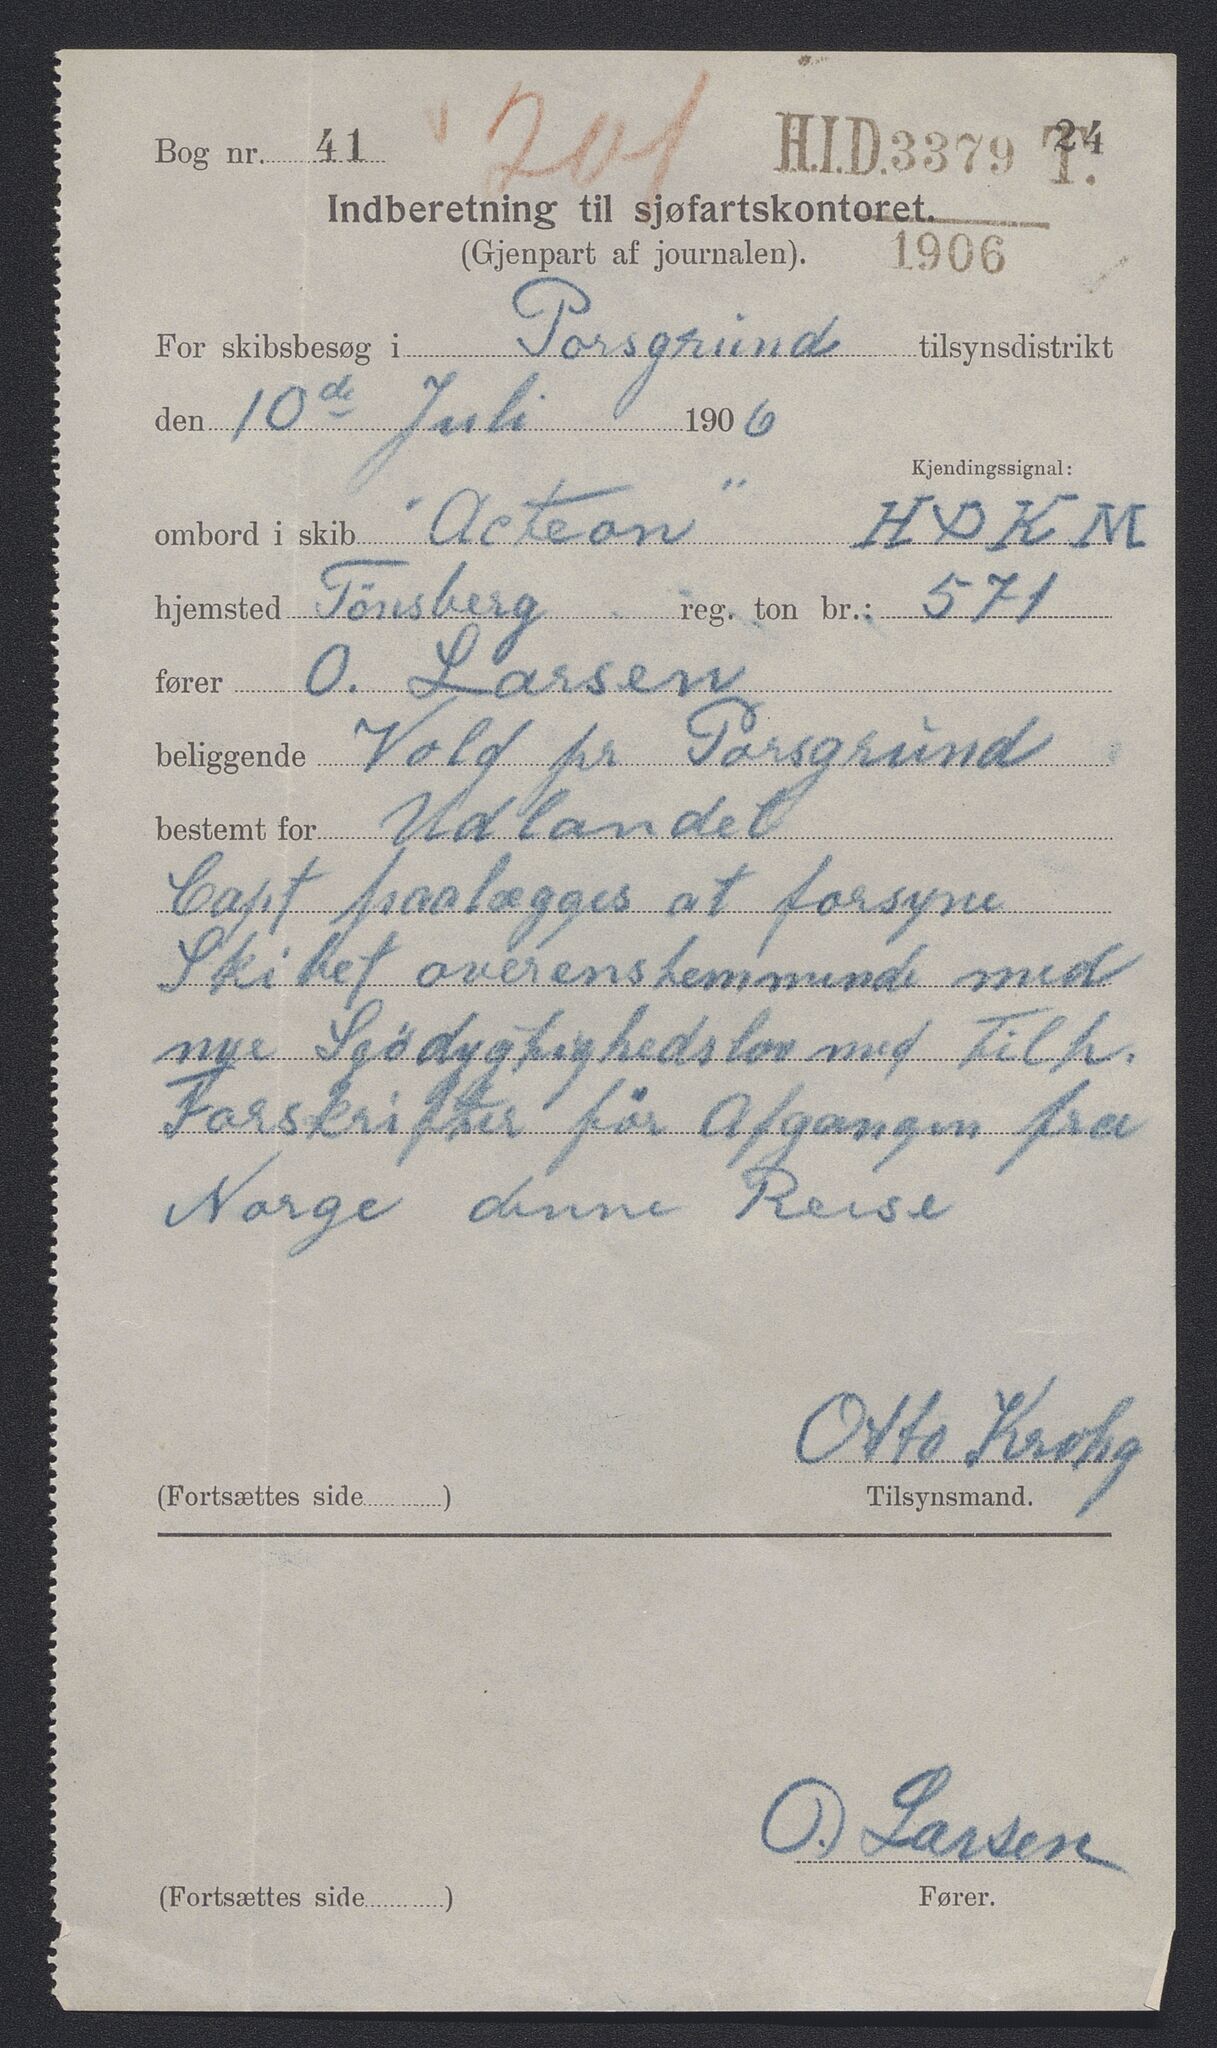 Bog nr. 41
201
H.I.D. 3379 T.
24
Indberetning til sjøfartskontoret.
1906
(Gjenpart af journalen).
For skibsbesøg i Porsgrund tilsynsdistrikt
den 10de Juli 1906
Kjendingssignal:
ombord i skib "Acteon" HDKM
hjemsted Tönsberg reg. ton br.: 571
fører O. Larsen
beliggende Vold pr Porsgrund
bestemt for Udlandet
Capt paalægges at forsyne
Skibet overenstemmende med
nye Sjödygtighedslov med Tilh.
Forskrifter för Afgangen fra
Norge denne Reise
Otto Krohg
(Fortsættes side ) Tilsynsmand.
O. Larsen
(Fortsættes side ) Fører.